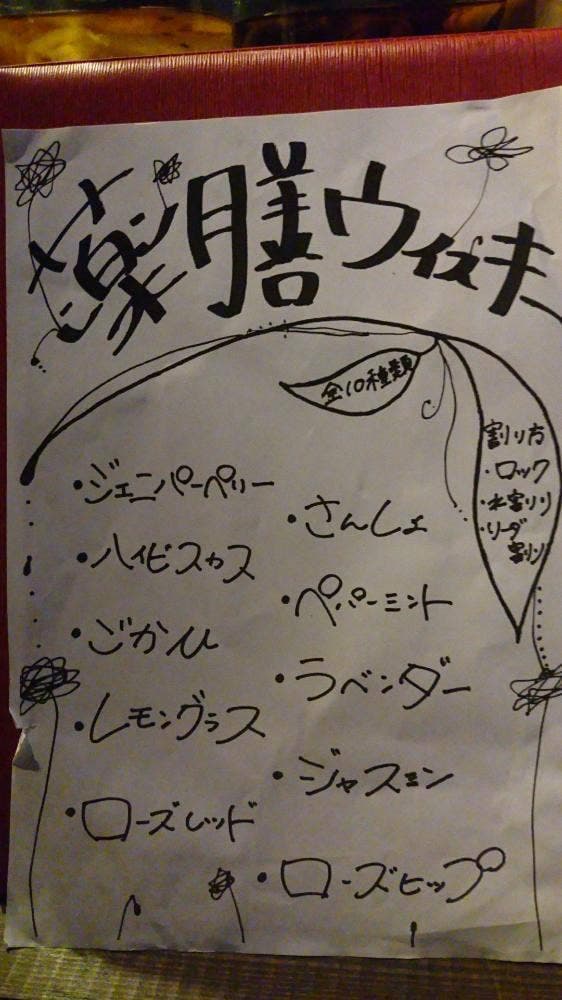 薬膳ウイスキー
全10種類
割り方
・ロック
・水割り
・ソーダ
割り
・ジェニパーペリー
・ハイビスカス
・ごかひ
・レモングラス
・ローズレッド
・さんしょ
・ペパーミント
・ラベンダー
・ジャスミン
・ローズヒップ